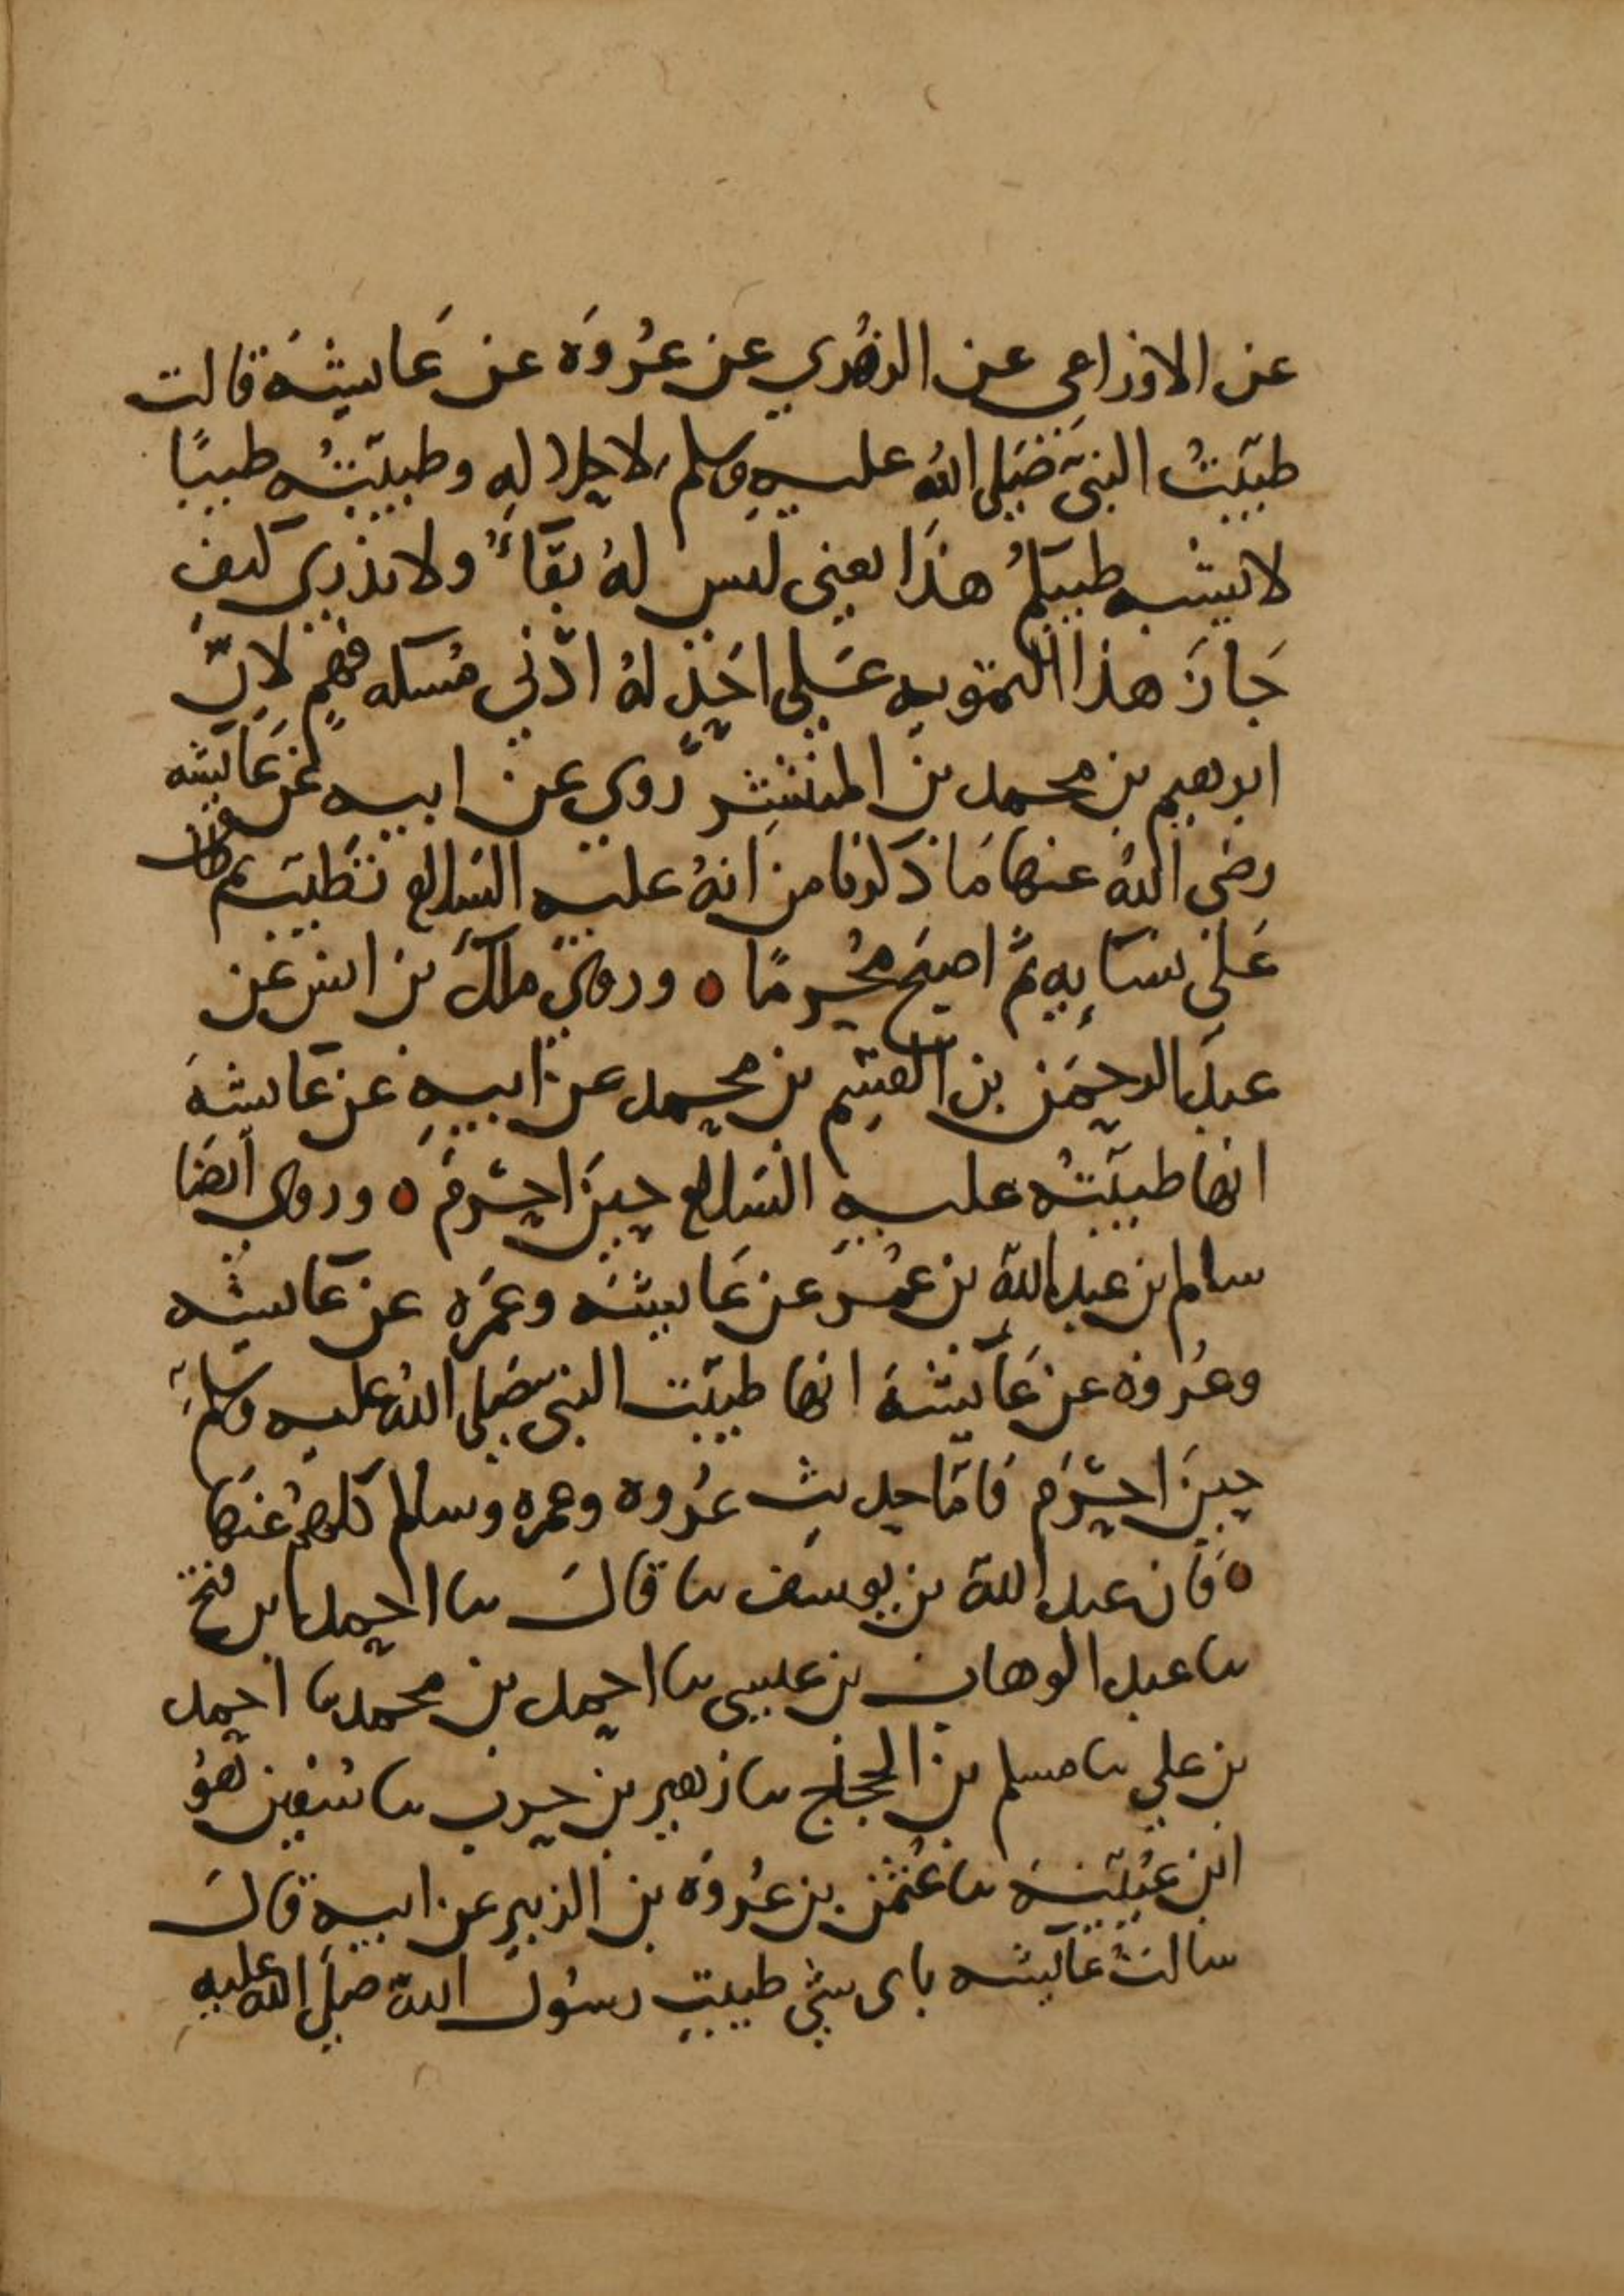 عن الاوزاعي عن الزهري عن عُروَة عن عَايشَة قالت
طيّبتُ النبيّ صَلى اللهُ عليهِ وسلم لاحلاله وطيّبتُه طيبًا
لا يشبه طيبكمُ هذَا يعني ليس لهُ بقَآءٌ ولا ندري كيف
جَازَ هذا التمويه عَلى احَدٍ لهُ ادْني مُسكه فهمٍ لانّ
ابرهيم بن محمد بن المنتشِر رَوي عن ابيه عن عَايشه
رضي اللهُ عنها مَا ذكرنا من انهُ عليه السَلام تطَيّب ثم طاف
عَلى نسَايِه ثمّ اصبحَ مُحرمًا ٥ وروي ملك بن انس عَن
عبد الرحمَن بن القسِم بن محمد عن ابيهِ عن عايشةَ
انها طيّبتُه عليهِ السَلام حينَ احْرمَ ٥ وروي ايضَا
سالم بن عبد الله بن عمُر عن عَايشَه وعَمَره عن عَايشه
وعُروه عن عَايشةَ انها طيّبت النبي صَلى اللهُ عليه وسَلم
حينَ احْرَم فَامّا حديث عُروه وعمره وسالم كلهمُ عنهَا
٥ فَان عبد الله بن يوسَف نا قالَ نا احمد بن فتح
نا عبد الوهاب بن عيسى نا احمد بن محمد نا احمد
بن علي نا مسلم بن الحجاج نا زهير بن حرب نا سُفين هوُ
ابن عُيَينَة نا عُثمَن بن عُروَة بن الزبيرِ عن ابيه قالَ
سالتُ عَايشه باى شي طيبتِ رسُول اللهِ صَلى الله عليهِ